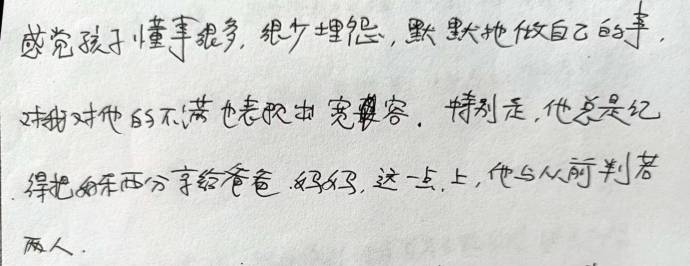 感觉孩子懂事很多，很少埋怨，默默地做自己的事，
对我对他的不满也表现出宽容。特别是，他总是记
得把好东西分享给爸爸妈妈，这一点上，他与从前判若
两人。